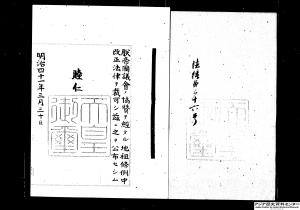 朕帝國議會ノ協賛ヲ經タル地租條例中
改正法律ヲ裁可シ茲ニ之ヲ公布セシム
睦仁
天皇
御璽
明治四十一年三月三十日
法律第二十六号
アジア歴史資料センター